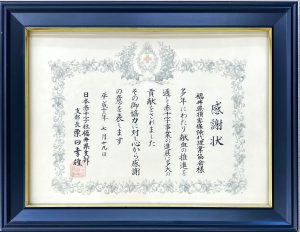 感謝状
福井県損害保険代理業協会様
多年にわたり献血の推進を
通じ赤十字事業の進展に多大の
貢献をされました
その御協力に対し心から感謝
の意を表します
平成十三年 七月十九日
日本赤十字社福井県支部
支部長 栗田幸雄